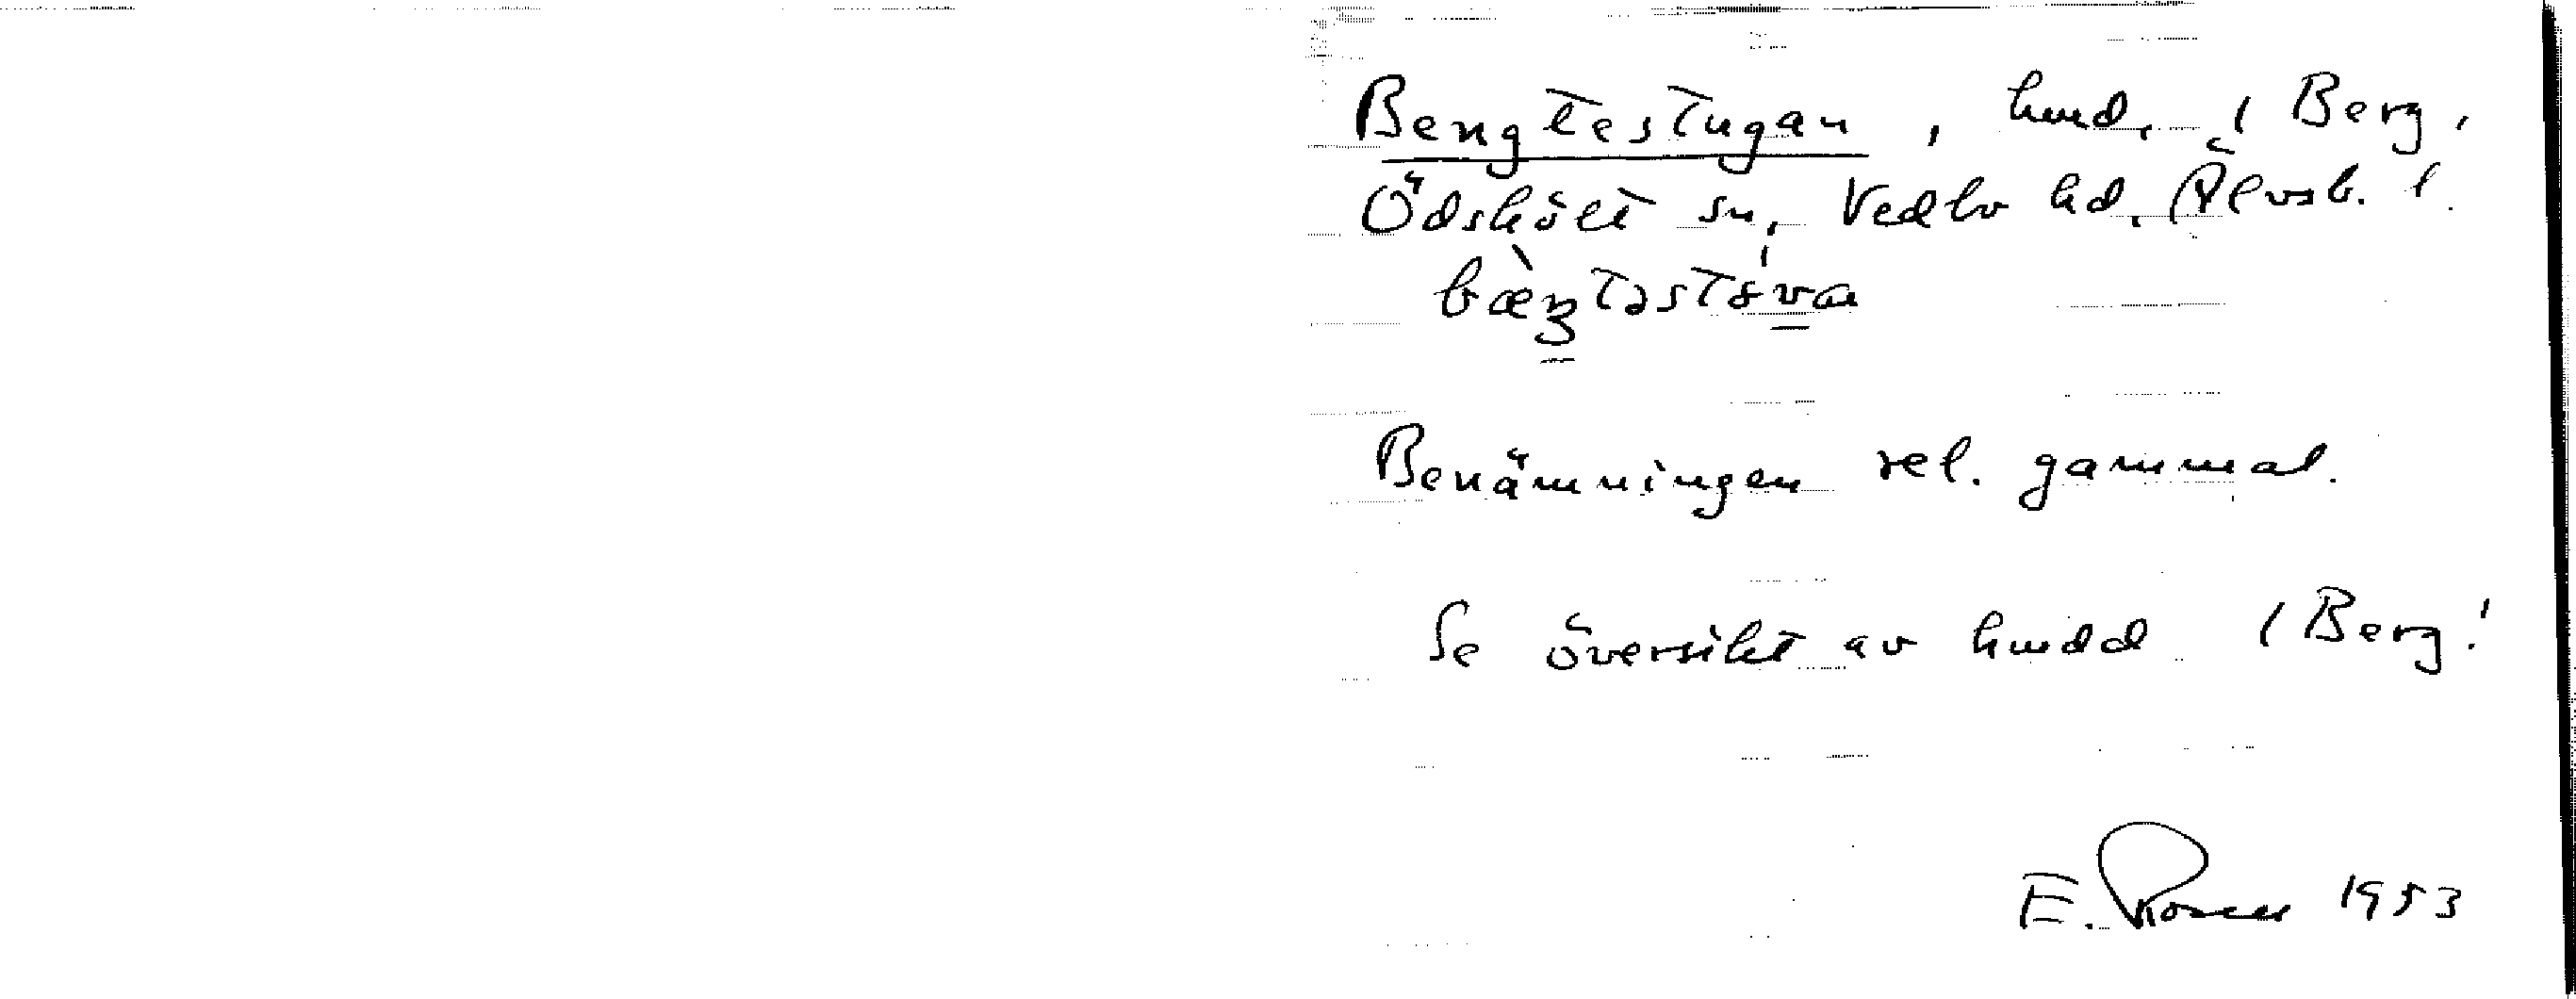 Bengtestugan, hmd. i Berg,
Ödskölt sn, Vedbo hd. Älvsb. l.
bæ̀ŋtəstówa
Benämningen rel. gammal.
Se översikt av hmdd i Berg!
E. Rosell 1953